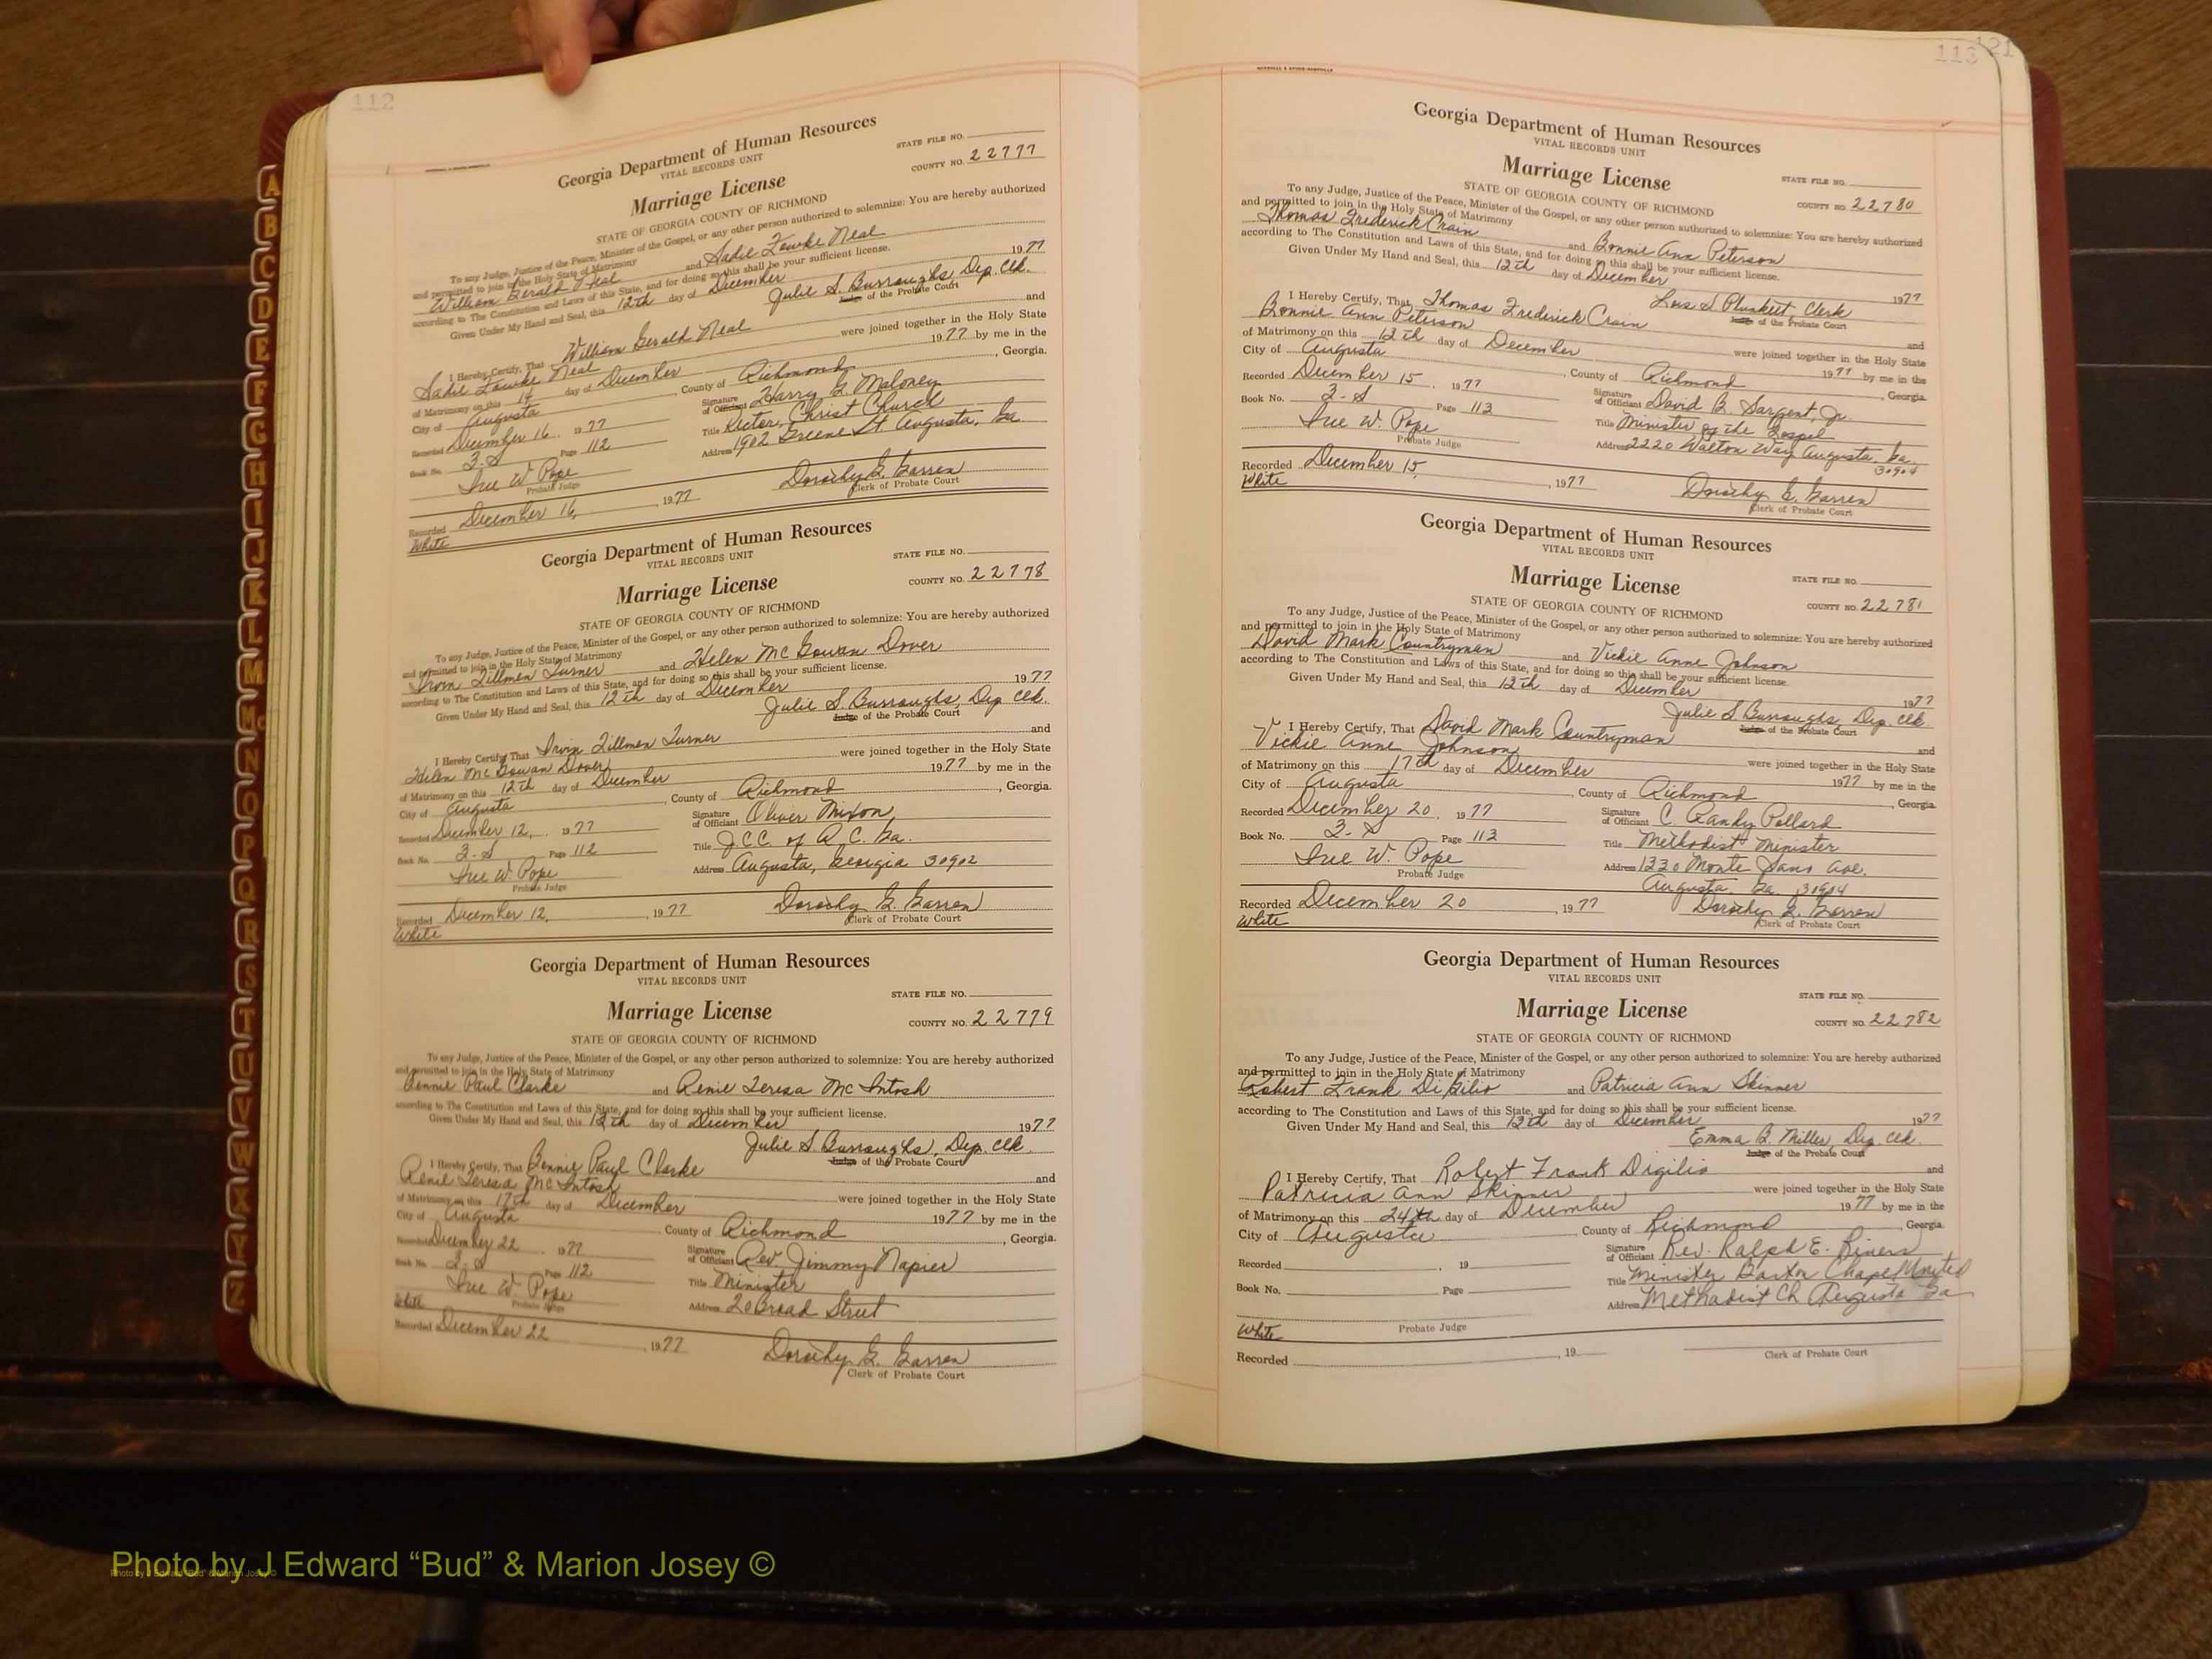 112
Georgia Department of Human Resources
VITAL RECORDS UNIT
STATE FILE NO.
Marriage License
COUNTY NO. 22777
STATE OF GEORGIA COUNTY OF RICHMOND
To any Judge, Justice of the Peace, Minister of the Gospel, or any other person authorized to solemnize: You are hereby authorized
and permitted to join in the Holy State of Matrimony
William Gerald Neal and Sadie Fowke Neal
according to The Constitution and Laws of this State, and for doing so this shall be your sufficient license.
Given Under My Hand and Seal, this 12th day of December 1977
Julie S. Burroughs, Dep. Clk.
Judge of the Probate Court
I Hereby Certify, That William Gerald Neal and
Sadie Fowke Neal were joined together in the Holy State
of Matrimony on this 14 day of December 1977 by me in the
City of Augusta, County of Richmond, Georgia.
Recorded December 16, 1977 Signature of Officiant Harry G. Maloney
Book No. 3-S Page 112 Title Rector, Christ Church
Address 1902 Greene St. Augusta, Ga.
Ine W. Pope
Probate Judge
Recorded December 16, 1977 Dorothy G. Garren
White Clerk of Probate Court
Georgia Department of Human Resources
VITAL RECORDS UNIT
STATE FILE NO.
Marriage License
COUNTY NO. 22778
STATE OF GEORGIA COUNTY OF RICHMOND
To any Judge, Justice of the Peace, Minister of the Gospel, or any other person authorized to solemnize: You are hereby authorized
and permitted to join in the Holy State of Matrimony
Irvin Tillman Turner and Helen McGowan Dover
according to The Constitution and Laws of this State, and for doing so this shall be your sufficient license.
Given Under My Hand and Seal, this 12th day of December 1977
Julie S. Burroughs, Dep. Clk.
Judge of the Probate Court
I Hereby Certify That Irvin Tillmen Turner and
Helen McGowan Dover were joined together in the Holy State
of Matrimony on this 12th day of December 1977 by me in the
City of Augusta, County of Richmond, Georgia.
Recorded December 12, 1977 Signature of Officiant Oliver Mixon
Book No. 3-S Page 112 Title J.C.C. of R.C. Ga.
Ine W. Pope Address Augusta, Georgia 30902
Probate Judge
Recorded December 12, 1977 Dorothy G. Garren
White Clerk of Probate Court
Georgia Department of Human Resources
VITAL RECORDS UNIT
STATE FILE NO.
Marriage License
COUNTY NO. 22779
STATE OF GEORGIA COUNTY OF RICHMOND
To any Judge, Justice of the Peace, Minister of the Gospel, or any other person authorized to solemnize: You are hereby authorized
and permitted to join in the Holy State of Matrimony
Bennie Paul Clarke and Renie Teresa McIntosh
according to The Constitution and Laws of this State, and for doing so this shall be your sufficient license.
Given Under My Hand and Seal, this 12th day of December 1977
Julie S. Burroughs, Dep. Clk.
Judge of the Probate Court
I Hereby Certify, That Bennie Paul Clarke and
Renie Teresa McIntosh were joined together in the Holy State
of Matrimony on this 17th day of December 1977 by me in the
City of Augusta County of Richmond, Georgia.
Recorded December 22 1977 Signature of Officiant Rev. Jimmy Napier
Book No. 3-S Page 112 Title Minister
Ine W. Pope Address 20 Broad Street
White Probate Judge
Recorded December 22 1977 Dorothy G. Garren
Clerk of Probate Court
113
121
Georgia Department of Human Resources
VITAL RECORDS UNIT
Marriage License
STATE FILE NO.
STATE OF GEORGIA COUNTY OF RICHMOND
COUNTY NO. 22780
To any Judge, Justice of the Peace, Minister of the Gospel, or any other person authorized to solemnize: You are hereby authorized
and permitted to join in the Holy State of Matrimony
Thomas Frederick Crain and Bonnie Ann Peterson
according to The Constitution and Laws of this State, and for doing so this shall be your sufficient license.
Given Under My Hand and Seal, this 12th day of December 1977
Lois S. Plunkett, Clerk
Judge of the Probate Court
I Hereby Certify, That Thomas Frederick Crain and
Bonnie Ann Peterson were joined together in the Holy State
of Matrimony on this 12th day of December 1977 by me in the
City of Augusta, County of Richmond, Georgia
Recorded December 15, 1977 Signature of Officiant David B. Sargent, Jr.
Book No. 3-S Page 113 Title Minister of the Gospel
Ine W. Pope Address 2220 Walton Way Augusta, Ga.
Probate Judge 30904
Recorded December 15, 1977 Dorothy G. Garren
White Clerk of Probate Court
Georgia Department of Human Resources
VITAL RECORDS UNIT
Marriage License
STATE FILE NO.
STATE OF GEORGIA COUNTY OF RICHMOND
COUNTY NO. 22781
To any Judge, Justice of the Peace, Minister of the Gospel, or any other person authorized to solemnize: You are hereby authorized
and permitted to join in the Holy State of Matrimony
David Mark Countryman and Vickie Anne Johnson
according to The Constitution and Laws of this State, and for doing so this shall be your sufficient license.
Given Under My Hand and Seal, this 12th day of December 1977
Julie S. Burroughs, Dep. Clk.
Judge of the Probate Court
I Hereby Certify, That David Mark Countryman and
Vickie Anne Johnson were joined together in the Holy State
of Matrimony on this 17th day of December 1977 by me in the
City of Augusta, County of Richmond, Georgia.
Recorded December 20, 1977 Signature of Officiant C. Randy Pollard
Book No. 3-S Page 113 Title Methodist Minister
Ine W. Pope Address 1330 Monte Sano Ave.
Probate Judge Augusta, Ga. 30904
Recorded December 20, 1977 Dorothy G. Garren
White Clerk of Probate Court
Georgia Department of Human Resources
VITAL RECORDS UNIT
STATE FILE NO.
Marriage License
COUNTY NO. 22782
STATE OF GEORGIA COUNTY OF RICHMOND
To any Judge, Justice of the Peace, Minister of the Gospel, or any other person authorized to solemnize: You are hereby authorized
and permitted to join in the Holy State of Matrimony
Robert Frank DiGilio and Patricia Ann Skinner
according to The Constitution and Laws of this State, and for doing so this shall be your sufficient license.
Given Under My Hand and Seal, this 13th day of December 1977
Emma B. Miller, Dep. Clk.
Judge of the Probate Court
I Hereby Certify, That Robert Frank Digilio and
Patricia Ann Skinner were joined together in the Holy State
of Matrimony on this 24th day of December 1977 by me in the
City of Augusta, County of Richmond, Georgia.
Recorded , 19 Signature of Officiant Rev. Ralph E. Rivers
Book No. Page Title Minister Barton Chapel United
Address Methodist Ch. Augusta Ga
White Probate Judge
Recorded , 19 Clerk of Probate Court
A
B
C
D
E
F
G
H
I
J
K
L
M
Mc
N
O
P
Q
R
S
T
U
V
W
X
Y
Z
Photo by J Edward “Bud” & Marion Josey ©
Photo by J Edward "Bud" & Marion Josey ©